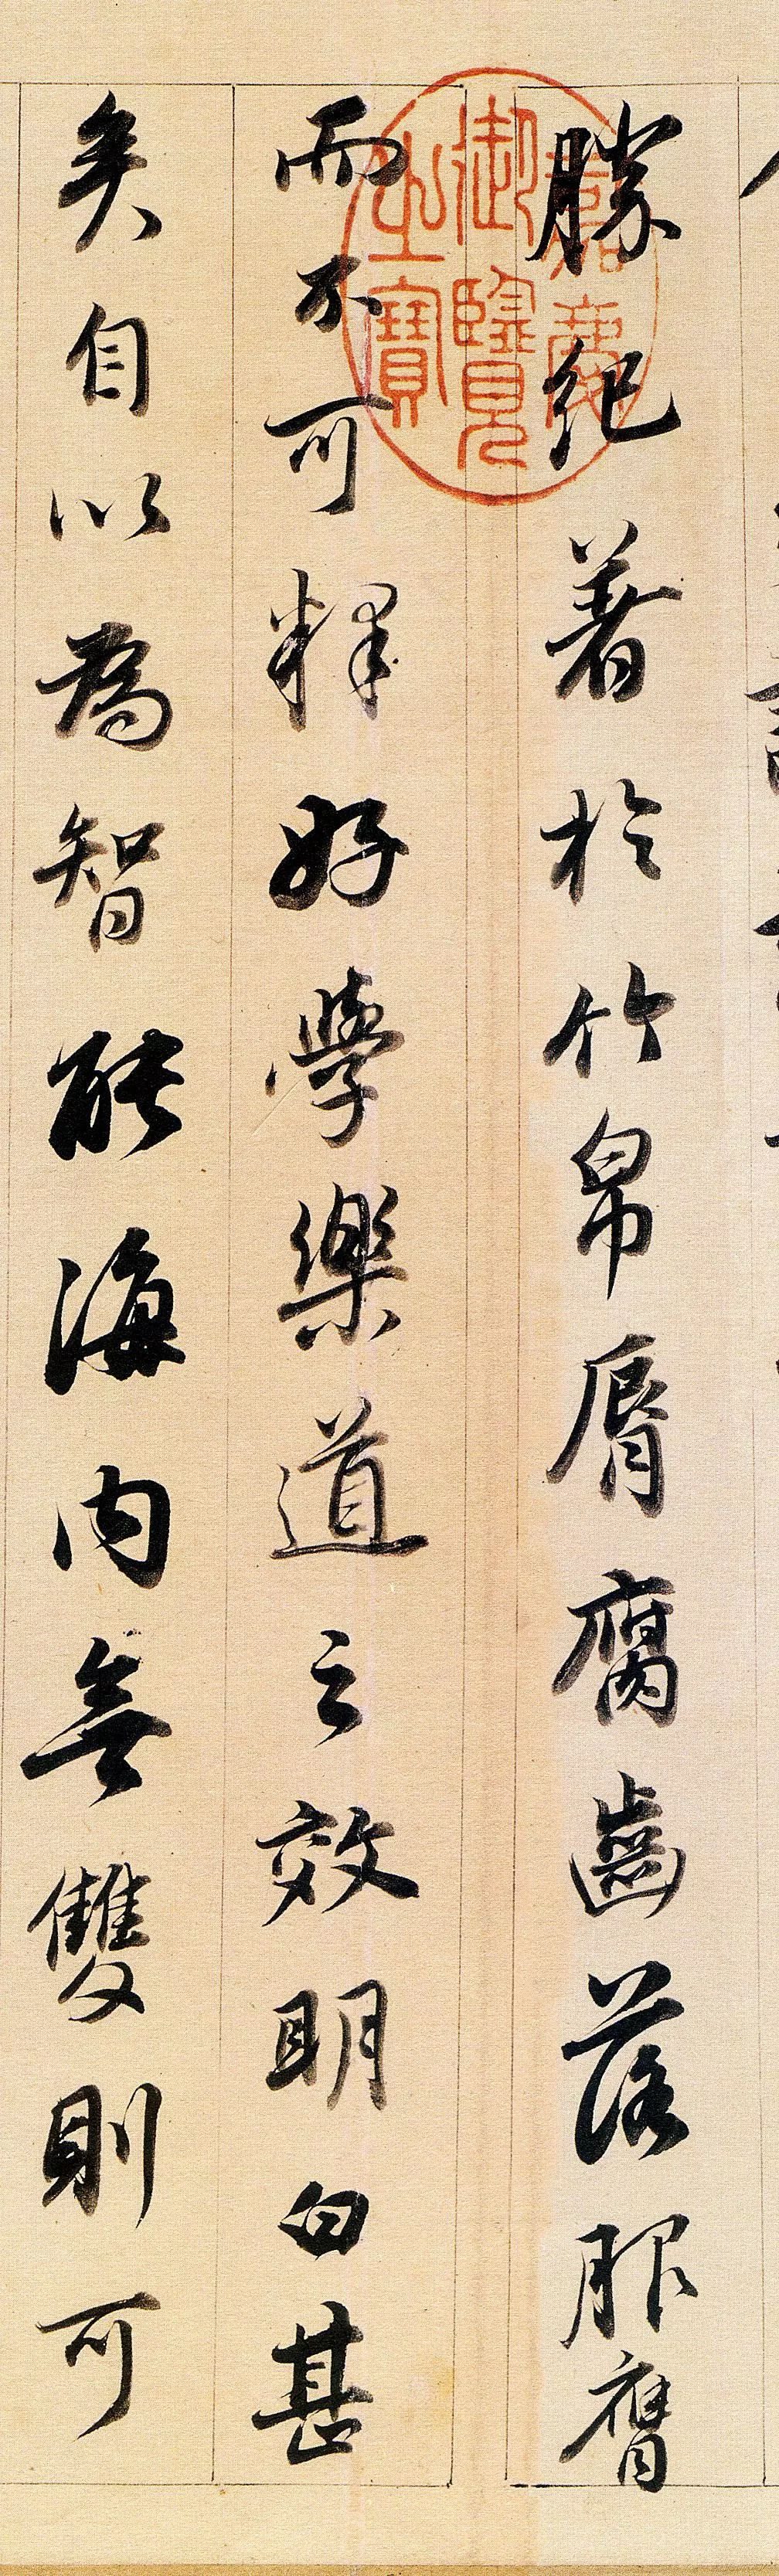 勝紀著於竹帛脣腐齒落服膺
而不可釋好學樂道之效明白甚
矣自以為智能海內無雙則可
嘉慶
御覽
之寶